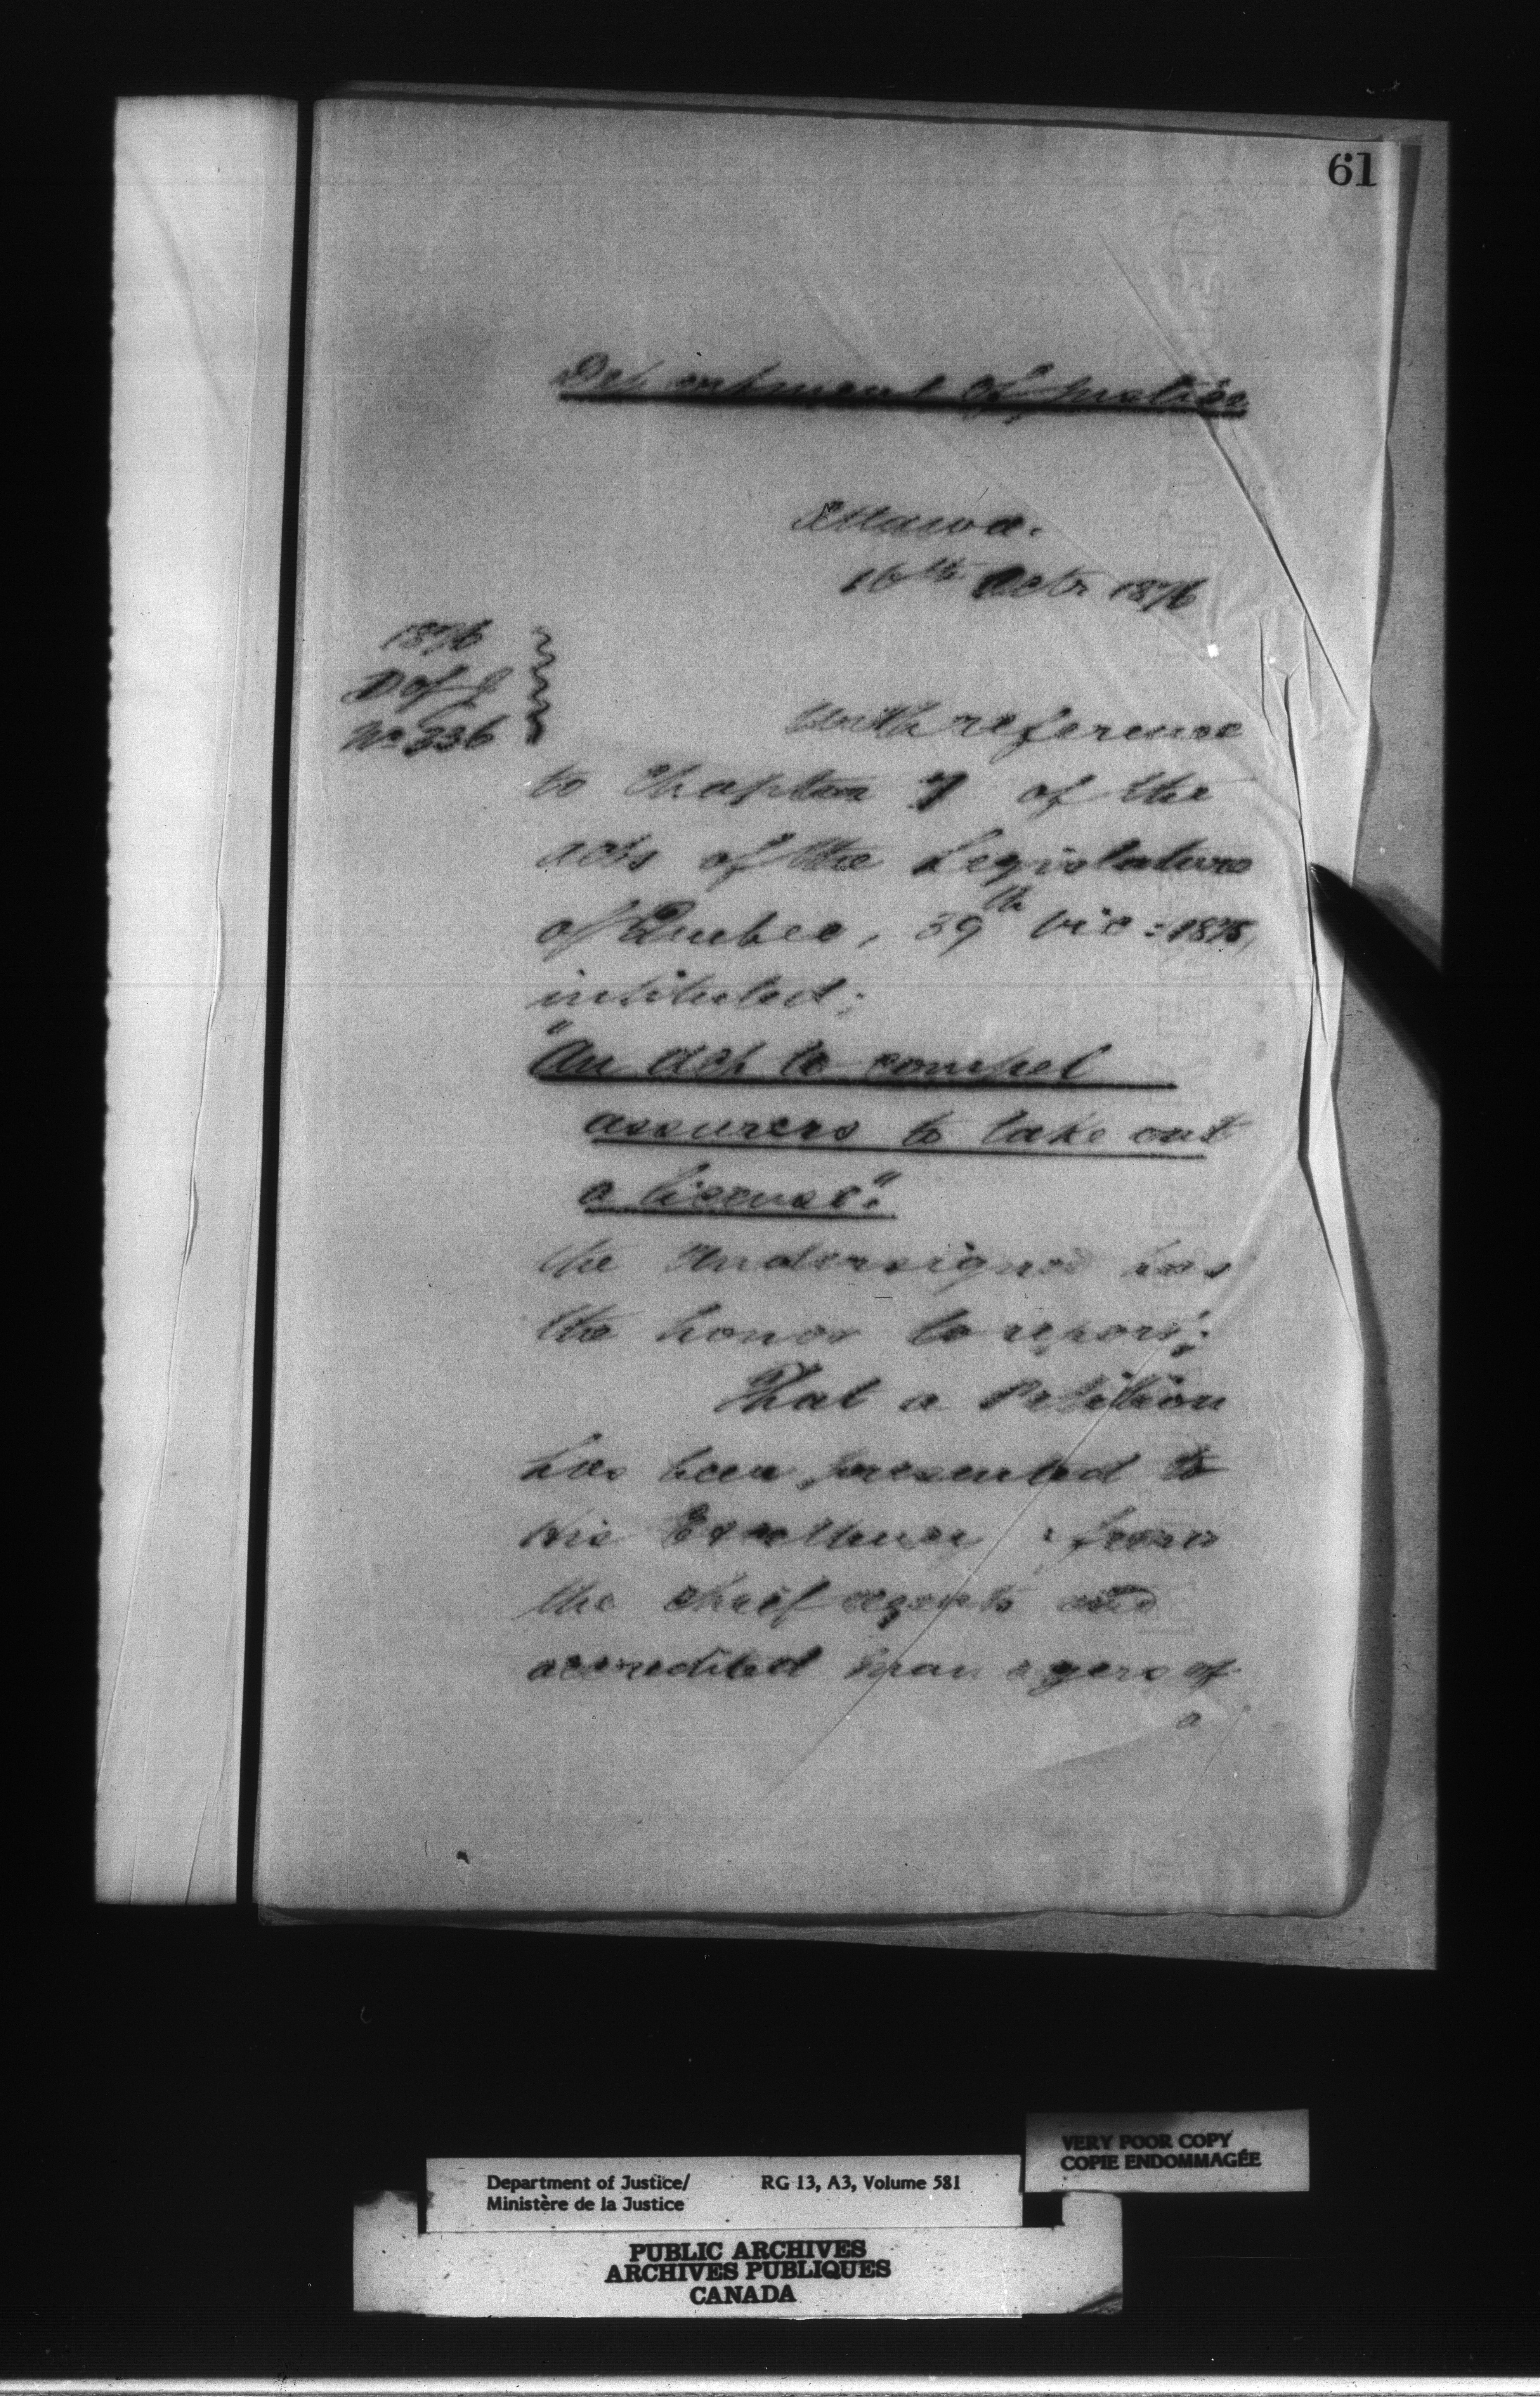 61
Department of Justice
Ottawa.
16th Octr 1876
1876
D of J
No 336
With reference
to Chapter 7 of the
acts of the Legislature
of Quebec, 39th Vic: 1875,
intituled;
"An Act to compel
assurers to take out
a license".
the Undersigned has
the honor to report;
That a Petition
has been presented to
His Excellency from
the chief agents and
accredited managers of
a
VERY POOR COPY
COPIE ENDOMMAGÉE
Department of Justice/ RG 13, A3, Volume 581
Ministère de la Justice
PUBLIC ARCHIVES
ARCHIVES PUBLIQUES
CANADA